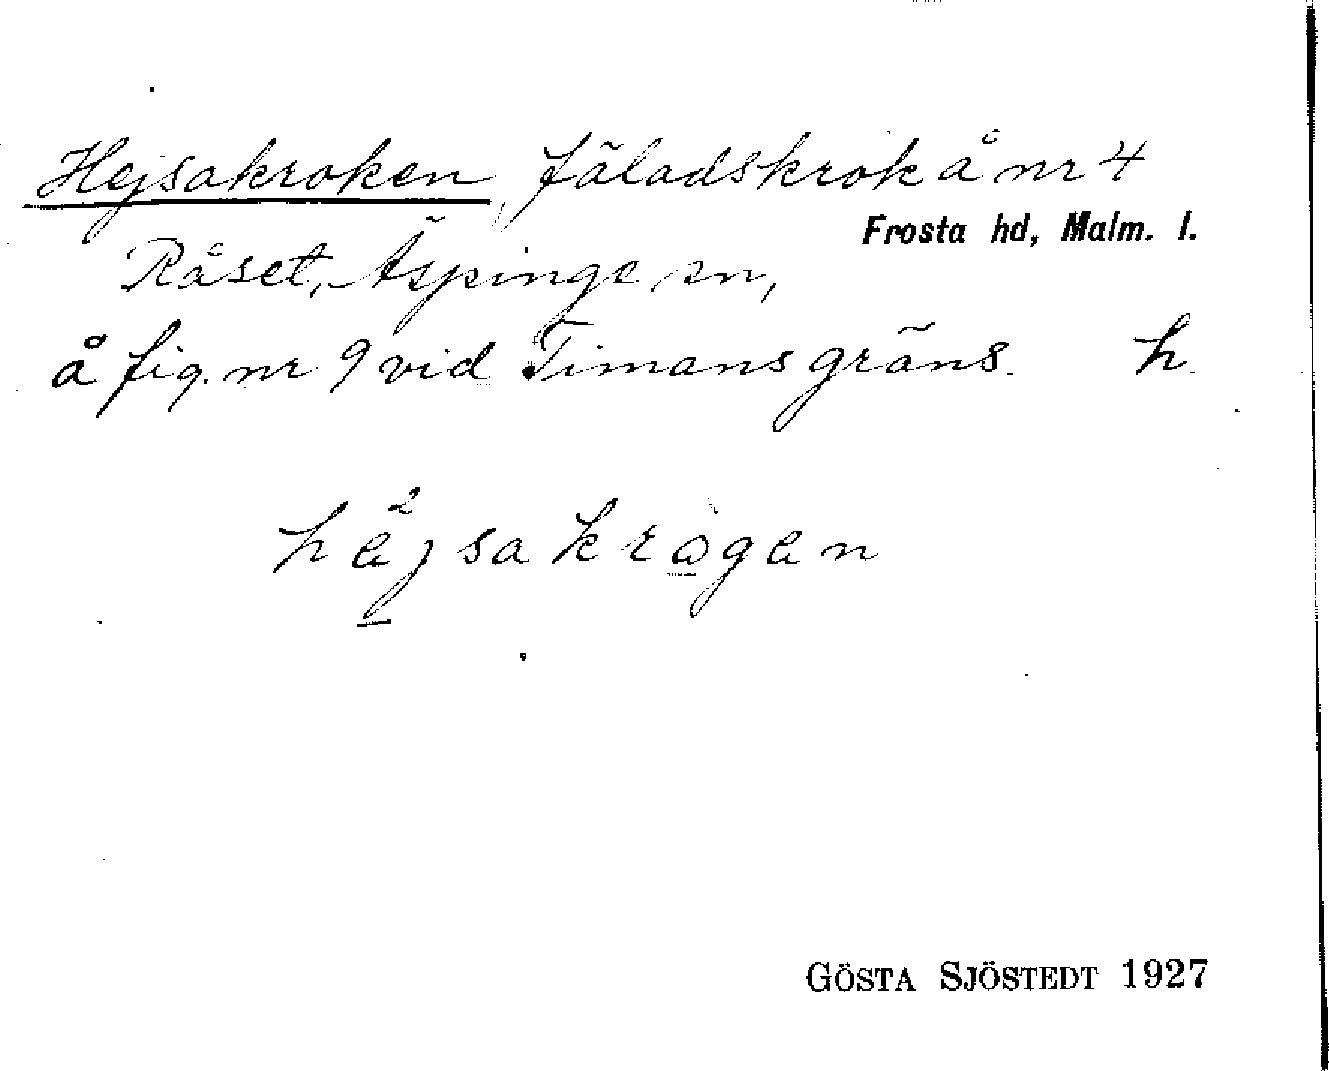 Hejsakroken, fäladskrok å nr 4
Frosta hd, Malm. l.
Råset, Äspinge sn,
å fig. nr 9 vid Timans gräns. h.
häjsakrogen
GÖSTA SJÖSTEDT 1927